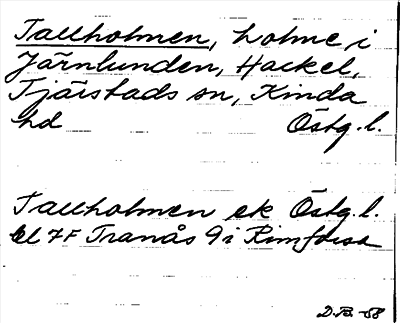 Tallholmen, holme i
Järnlunden, Hackel,
Tjärstads sn, Kinda
hd Östg. l.
Tallholmen ek Östg. l.
bl 7F Tranås 9i Rimforsa
D.B. -68